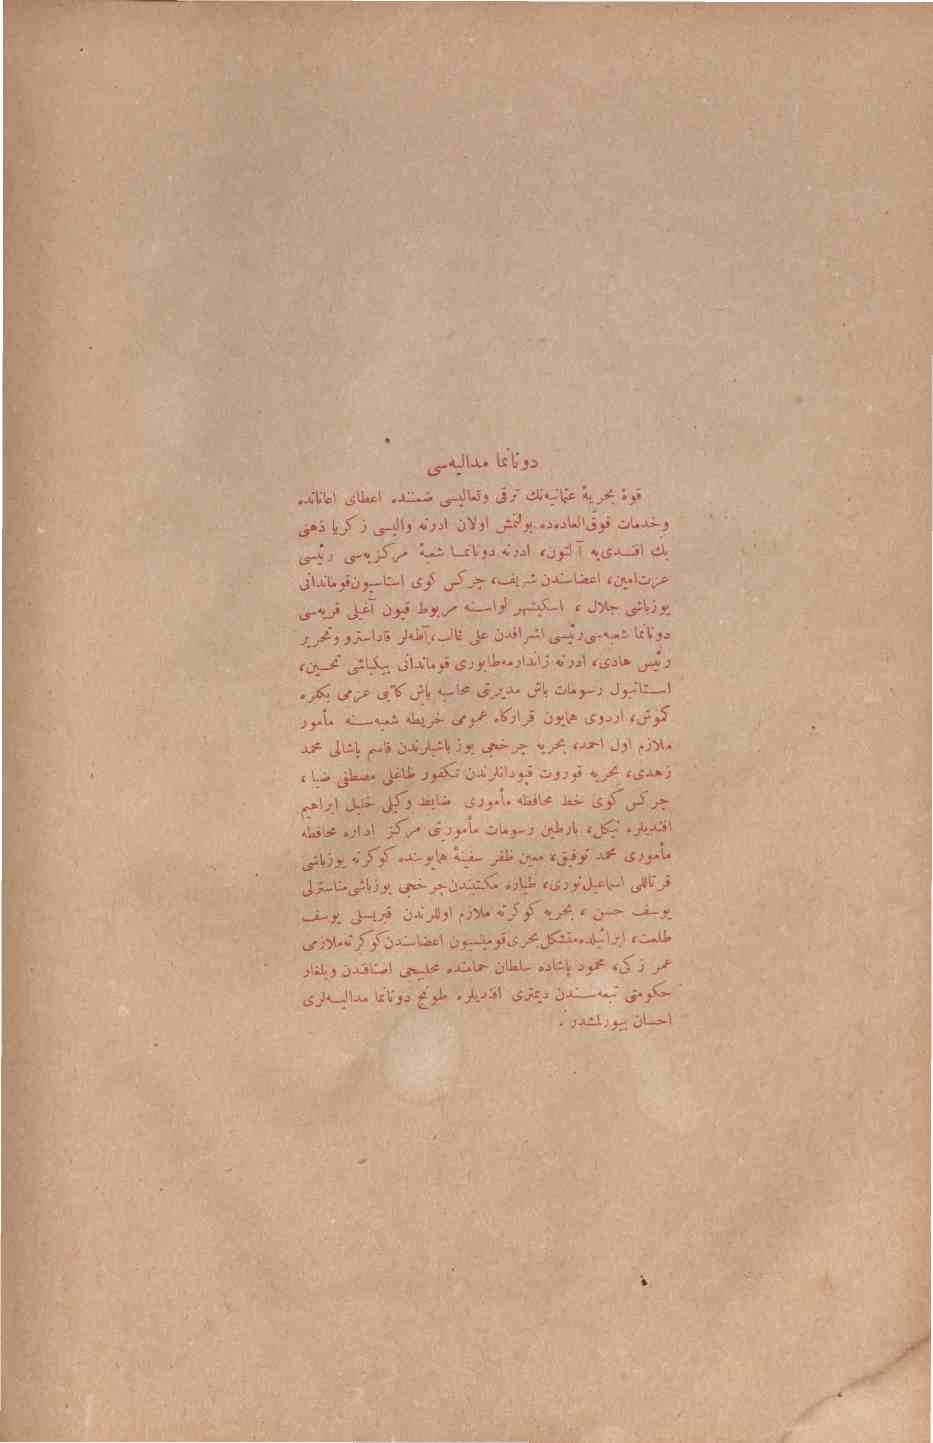 دونانما مدالیه‌سی
قوهٔ بحریهٔ عثمانیه‌نك ترقی وتعالیسی ضمننده اعطای اعاناتده
وخدمات فوق‌العاده‌ده بولنمش اولان ادرنه والیسی زكریا ذهنی
بك افندی‌یه آلتون، ادرنه دونانما شعبهٔ مركزیه‌سی رئیسی
عزت‌امین، اعضاسندن شریف، چركس كوی استاسیون‌قوماندانی
یوزباشی جلال ، اسكیشهر لواسنه مربوط قیون آغیلی قریه‌سی
دونانما شعبه‌سی‌رئیسی اشرافدن علی غالب، آطه‌لر قاداسترو وتحریر
رئیس هادی، ادرنه ژاندارمه‌طابوری قوماندانی بیكباشی تحسین،
استانبول رسومات باش مدیریتی محاسبه باش كاتبی عزمی بكلره
كموش، اردوی همایون قراركاه عمومی خریطه شعبه‌سنه مأمور
ملازم اول احمد، بحریه چرخجی یوزباشیلرندن قاسم پاشالی محمد
زهدی، بحریه قوروت قپودانلرندن تكفور طاغلی مصطفی ضیا ،
چركس كوی خط محافظه مأموری ضابط وكیلی خلیل ابراهیم
افندیلره نیكل، بارطین رسومات مأموریتی مركز اداره محافظه
مأموری محمد توفیق، معین ظفر سفینهٔ همایوننده كوكرته یوزباشی
قرتاللی اسماعیل‌نوری، طیاره مكتبندن‌چرخجی یوزباشی‌مناسترلی
یوسف حسن ، بحریه كوكرته ملازم اوللرندن قبریسلی یوسف
طلعت، ایرانیلده‌متشكل‌بحری‌قومیسیون اعضاسندن‌كوكرته‌ملازمی
عمر زكی، محمود پاشاده سلطان حمامنده محلبیجی اصنافندن وبلغار
حكومتی تبعه‌سندن دیمتری افندیلره طونج دونانما مدالیه‌لری
احسان بیورلمشدر .